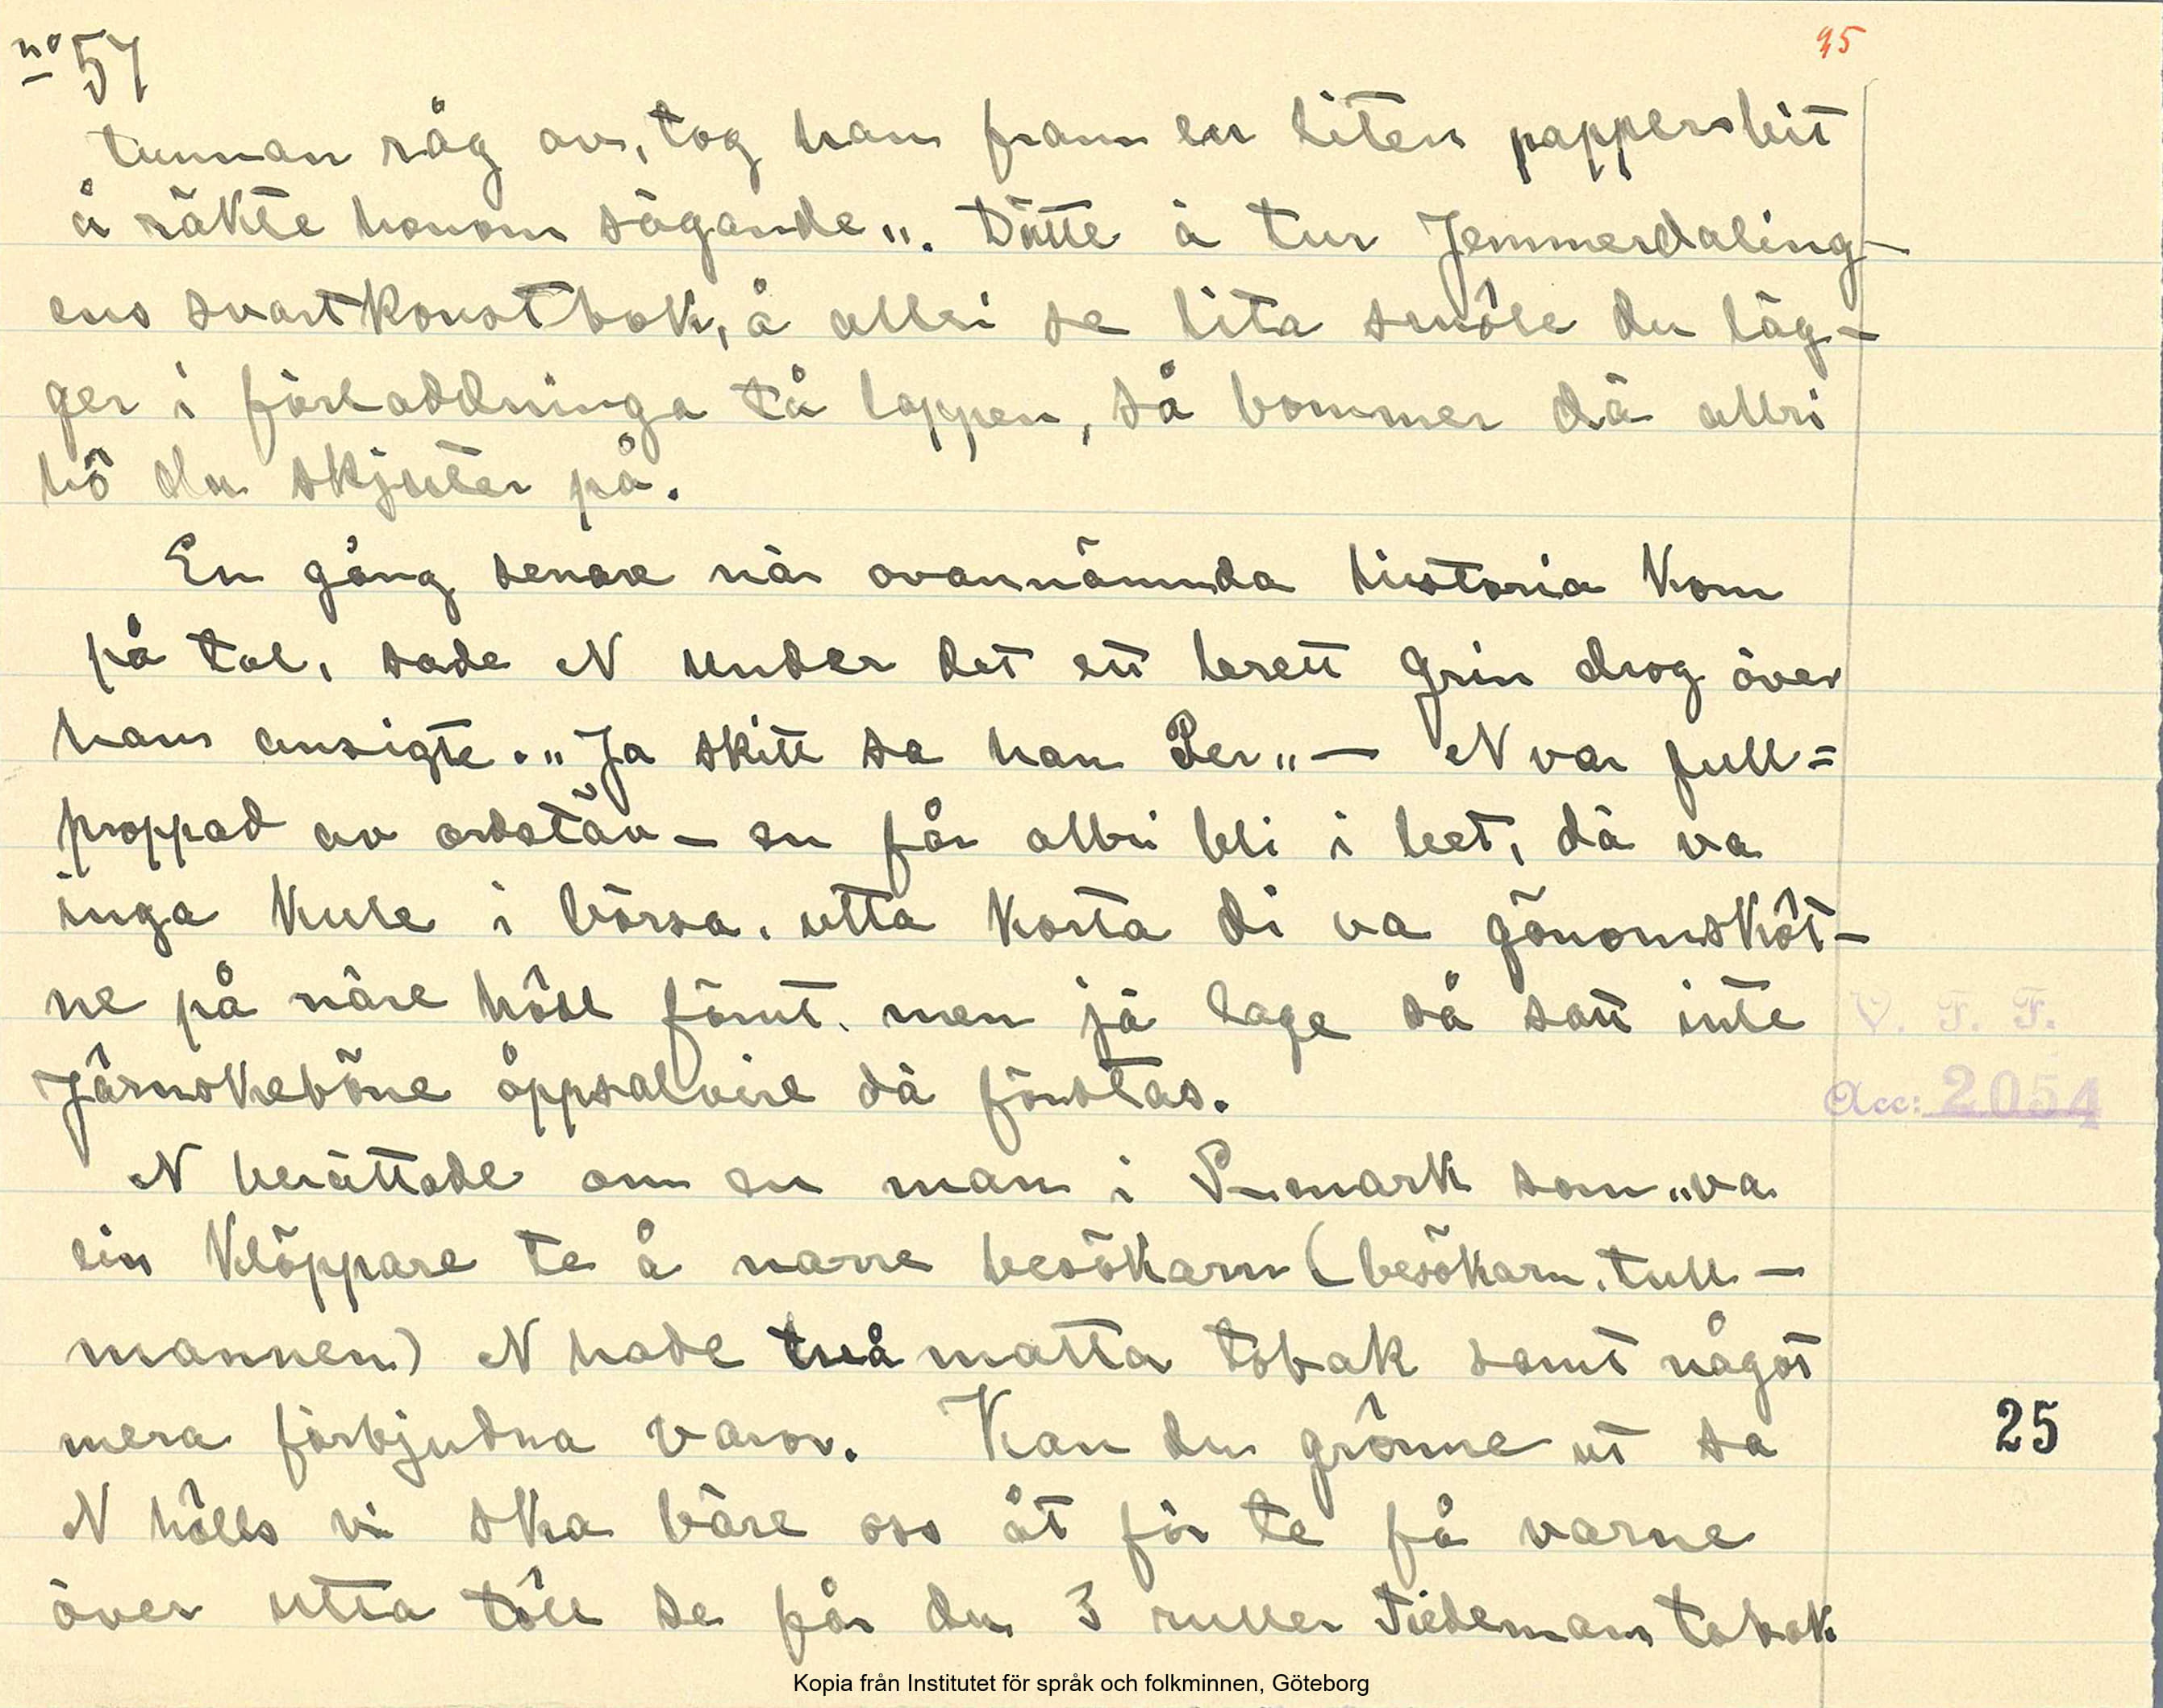 no 57
95
tunnan råg av, tog han fram en liten pappersbit
å räkte honom sägande". Dätte ä tur Jemmerdaling-
ens svartkonstbok, å allri se lita smôle du läg-
ger i förladdninga tå lappen, så bommer dä allri
hô du skjuter på.
En gång senare när ovannämnda historia kom
på tal, sade N under det ett brett grin drog över
hans ansigte. "Ja skitt sa han Per" — N var full=
proppad av ordstäv - en får allri bli i beet, dä va
inga kule i börsa. utta korta di va gönomskôt-
ne på näre hôll fömt. men jä lage så satt inte
Järnskeböne åppsalvire dä fönstas.
N berättade om en man i S-mark som "va
ein klöppare te å narre besökarn (besökarn. tull-
mannen) N hade två matta tobak samt något
mera förbjudna varor. Kan du grônne ut sa
N hôlls vi ska bäre oss åt för te få varne
över utta tôll se får du 3 ruller Tiedemans tobak
V. F. F.
Acc: 2054
25
Kopia från Institutet för språk och folkminnen, Göteborg